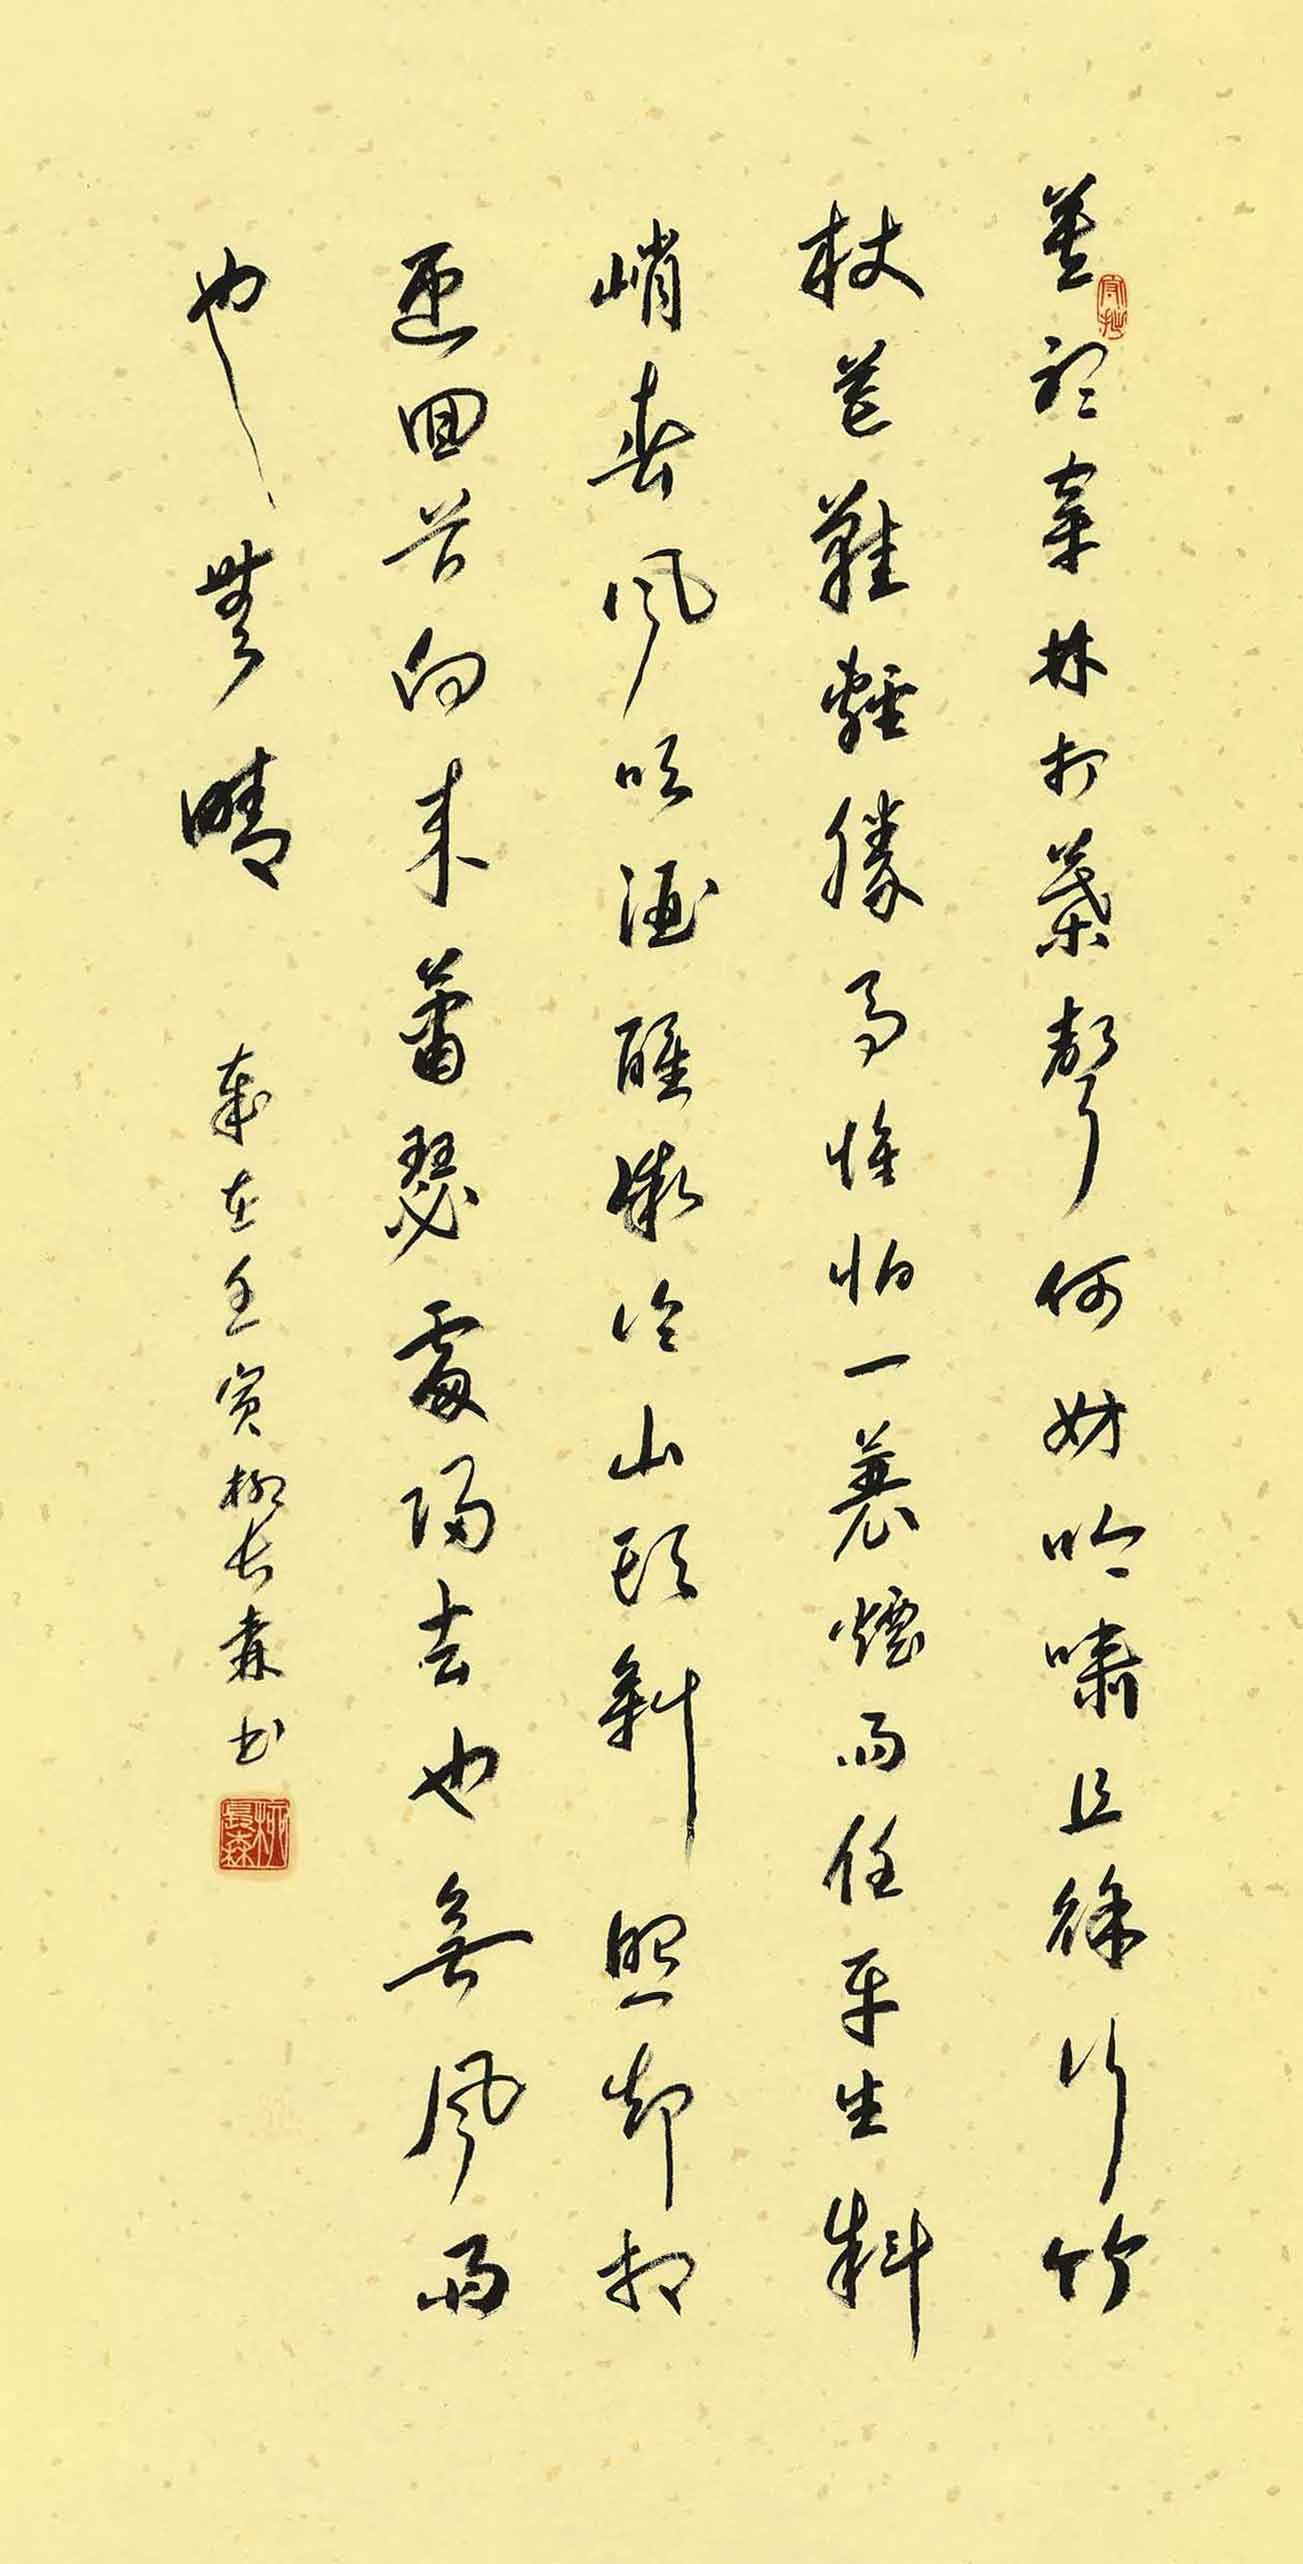 莫聽穿林打葉聲何妨吟嘯且徐行竹
杖芒鞋輕勝馬誰怕一蓑煙雨任平生料
峭春風吹酒醒微冷山頭斜照却相
迎回首向来蕭瑟處歸去也無風雨
也無晴
歲在壬寅柳長森書
守拙
柳長森